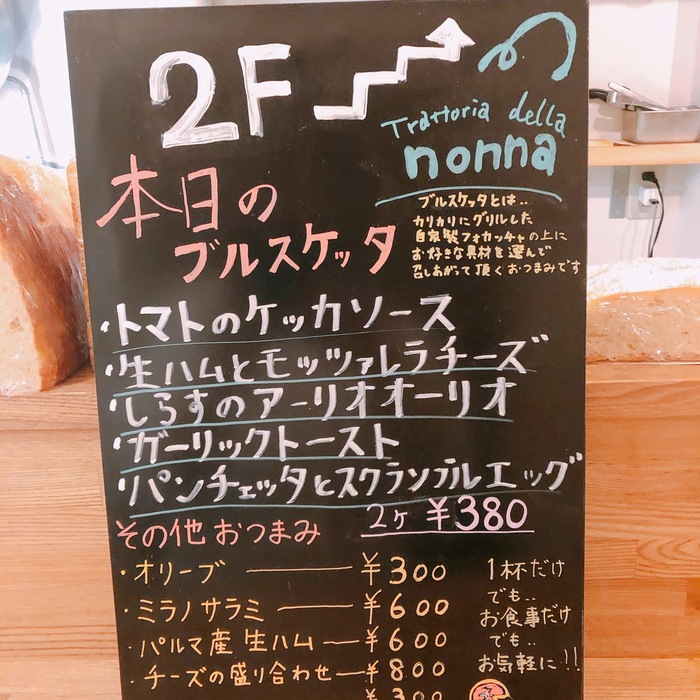 2F
Trattoria della
nonna
本日の
ブルスケッタ
ブルスケッタとは..
カリカリにグリルした
自家製フォカッチャの上に
お好きな具材を選んで
召しあがって頂くおつまみです
・トマトのケッカソース
・生ハムとモッツァレラチーズ
・しらすのアーリオオーリオ
・ガーリックトースト
・パンチェッタとスクランブルエッグ
2ヶ ¥380
その他おつまみ
・オリーブ ¥300
・ミラノサラミ ¥600
・パルマ産生ハム ¥600
・チーズの盛り合わせ ¥800
¥300
1杯だけ
でも..
お食事だけ
でも..
お気軽に!!